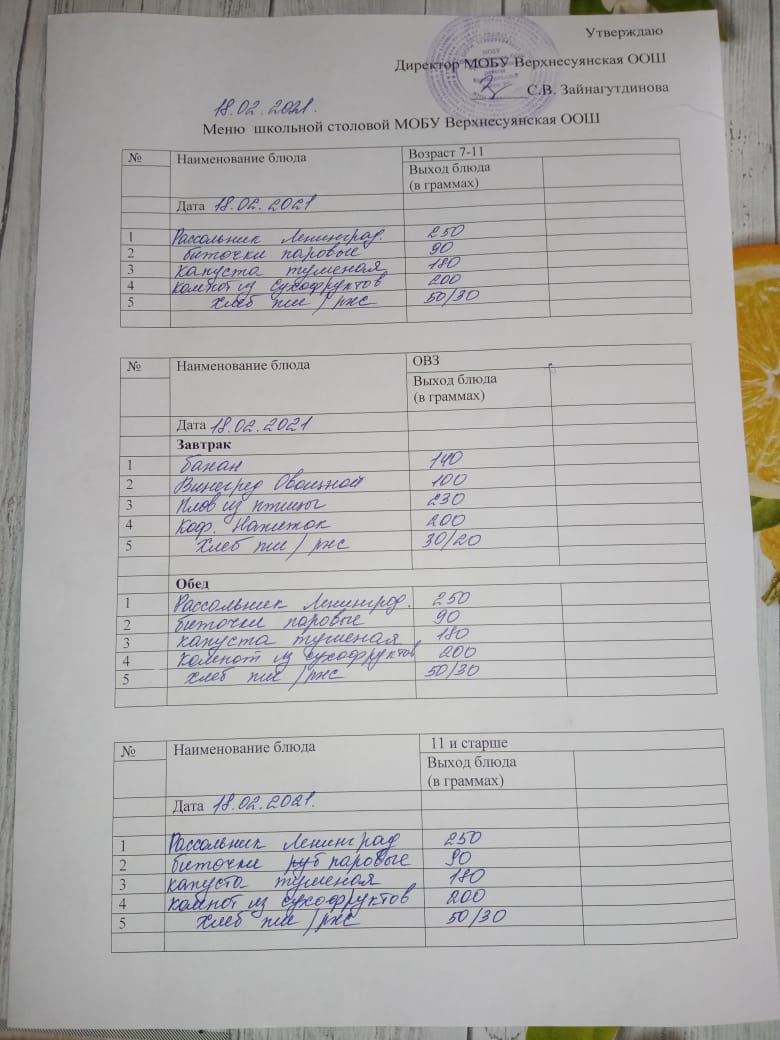 Утверждаю
Директор МОБУ Верхнесуянская ООШ
С.В. Зайнагутдинова
18.02.2021.
Меню школьной столовой МОБУ Верхнесуянская ООШ
№ Наименование блюда Возраст 7-11
Выход блюда
(в граммах)
Дата 18.02.2021
1 Рассольник Ленинград. 250
2 биточки паровые 90
3 капуста тушеная 180
4 компот из сухофруктов 200
5 хлеб пш/рж 50/30
№ Наименование блюда ОВЗ
Выход блюда
(в граммах)
Дата 18.02.2021
Завтрак
1 банан 140
2 Винегред Овощной 100
3 Плов из птицы 230
4 Коф. Напиток 200
5 Хлеб пш/рж 30/20
Обед
1 Рассольник Ленинград. 250
2 биточки паровые 90
3 капуста тушеная 180
4 компот из сухофруктов 200
5 хлеб пш/рж 50/30
№ Наименование блюда 11 и старше
Выход блюда
(в граммах)
Дата 18.02.2021.
1 Рассольник Ленинград 250
2 биточки руб паровые 90
3 капуста тушеная 180
4 компот из сухофруктов 200
5 Хлеб пш/рж 50/30